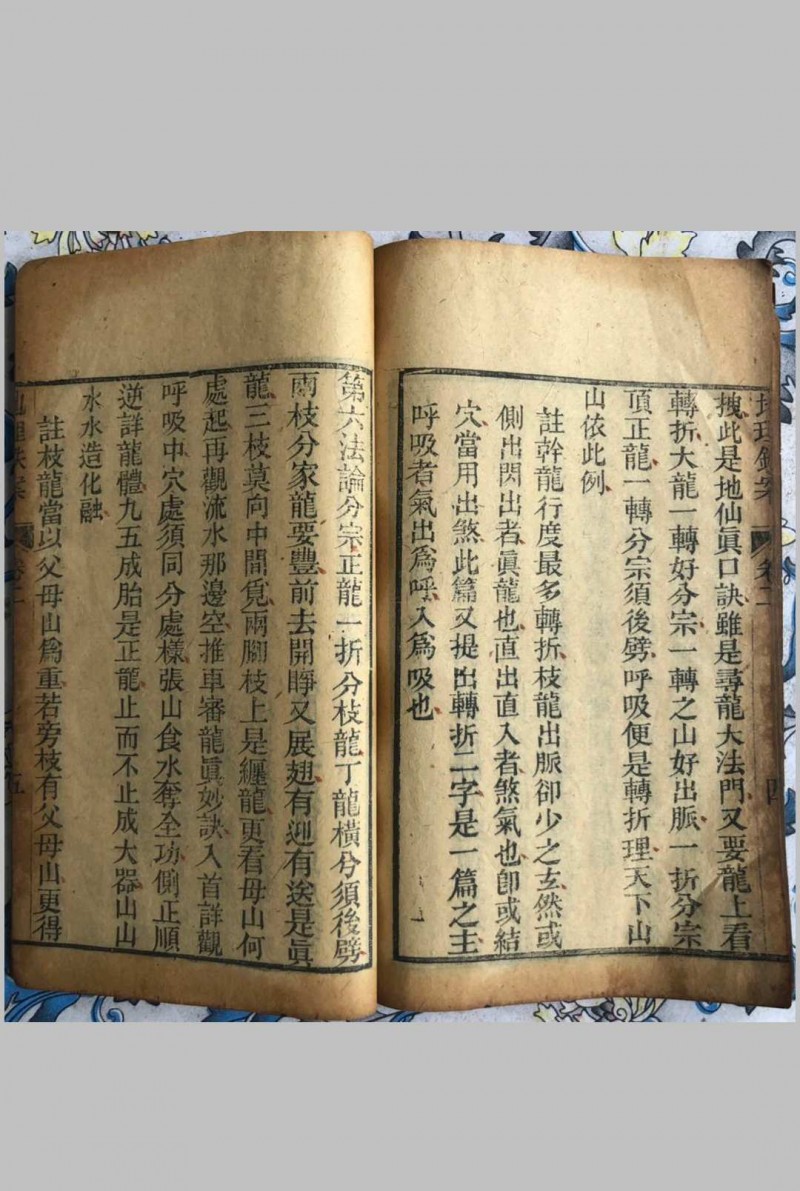 地理鉄案 卷二 四
拽此是地仙眞口訣雖是尋龍大法門又要龍上看
轉折大龍一轉好分宗一轉之山好出脈一折分宗
頂正龍一轉分宗須後劈呼吸便是轉折理天下山
山依此例
註幹龍行度最多轉折枝龍出脈卻少之玄然或
側出閃出者眞龍也直出直入者煞氣也卽或結
穴當用出煞此篇又提出轉折二字是一篇之主
呼吸者氣出爲呼入爲吸也
第六法論分宗正龍一折分枝龍丁龍橫分須後劈
兩枝分家龍要豐前去開睜又展翅有迎有送是眞
龍三枝莫向中間覓兩腳枝上是纏龍更看母山何
處起再觀流水那邊空推車審龍眞妙訣入首詳觀
呼吸中穴處須同分處樣張山食水奪全功側正順
逆詳龍體九五成胎是正龍止而不止成大器山山
水水造化融
註枝龍當以父母山爲重若旁枝有父母山更得
卷二 五